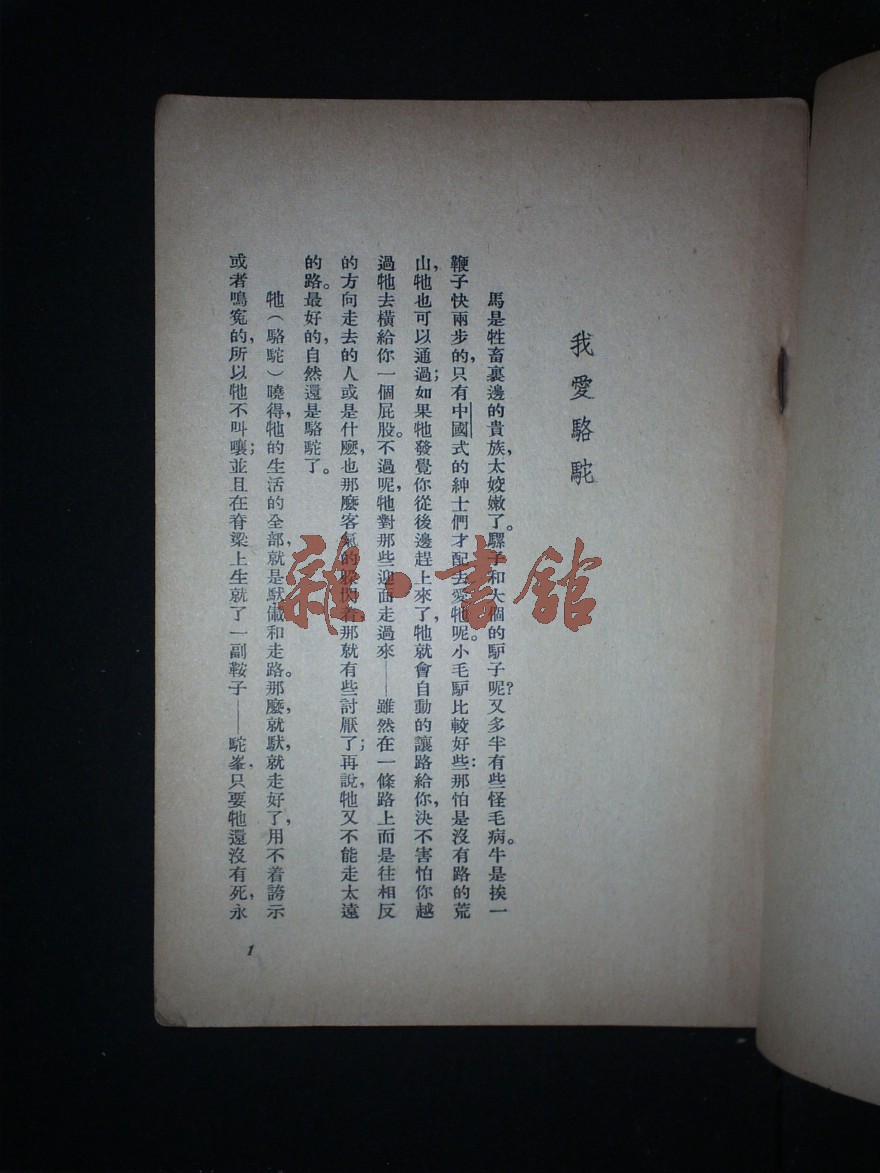 我愛駱駝
馬是牲畜裏邊的貴族，太姣嫩了。騾子和大個的馿子呢？又多半有些怪毛病。牛是挨一
鞭子快兩步的，只有中國式的紳士們才配去愛牠呢。小毛馿比較好些：那怕是沒有路的荒
山，牠也可以通過；如果牠發覺你從後邊趕上來了，牠就會自動的讓路給你，決不害怕你越
過牠去橫給你一個屁股。不過呢，牠對那些迎面走過來——雖然在一條路上而是往相反
的方向走去的人或是什麼，也那麼客氣的躲閃着，那就有些討厭了；再說，牠又不能走太遠
的路。最好的，自然還是駱駝了。
牠（駱駝）曉得，牠的生活的全部，就是馱儎和走路。那麼，就馱，就走好了，用不着誇示
或者鳴冤的，所以牠不叫嚷；並且在脊梁上生就了一副鞍子——駝峯，只要牠還沒有死，永
1
雜·書館